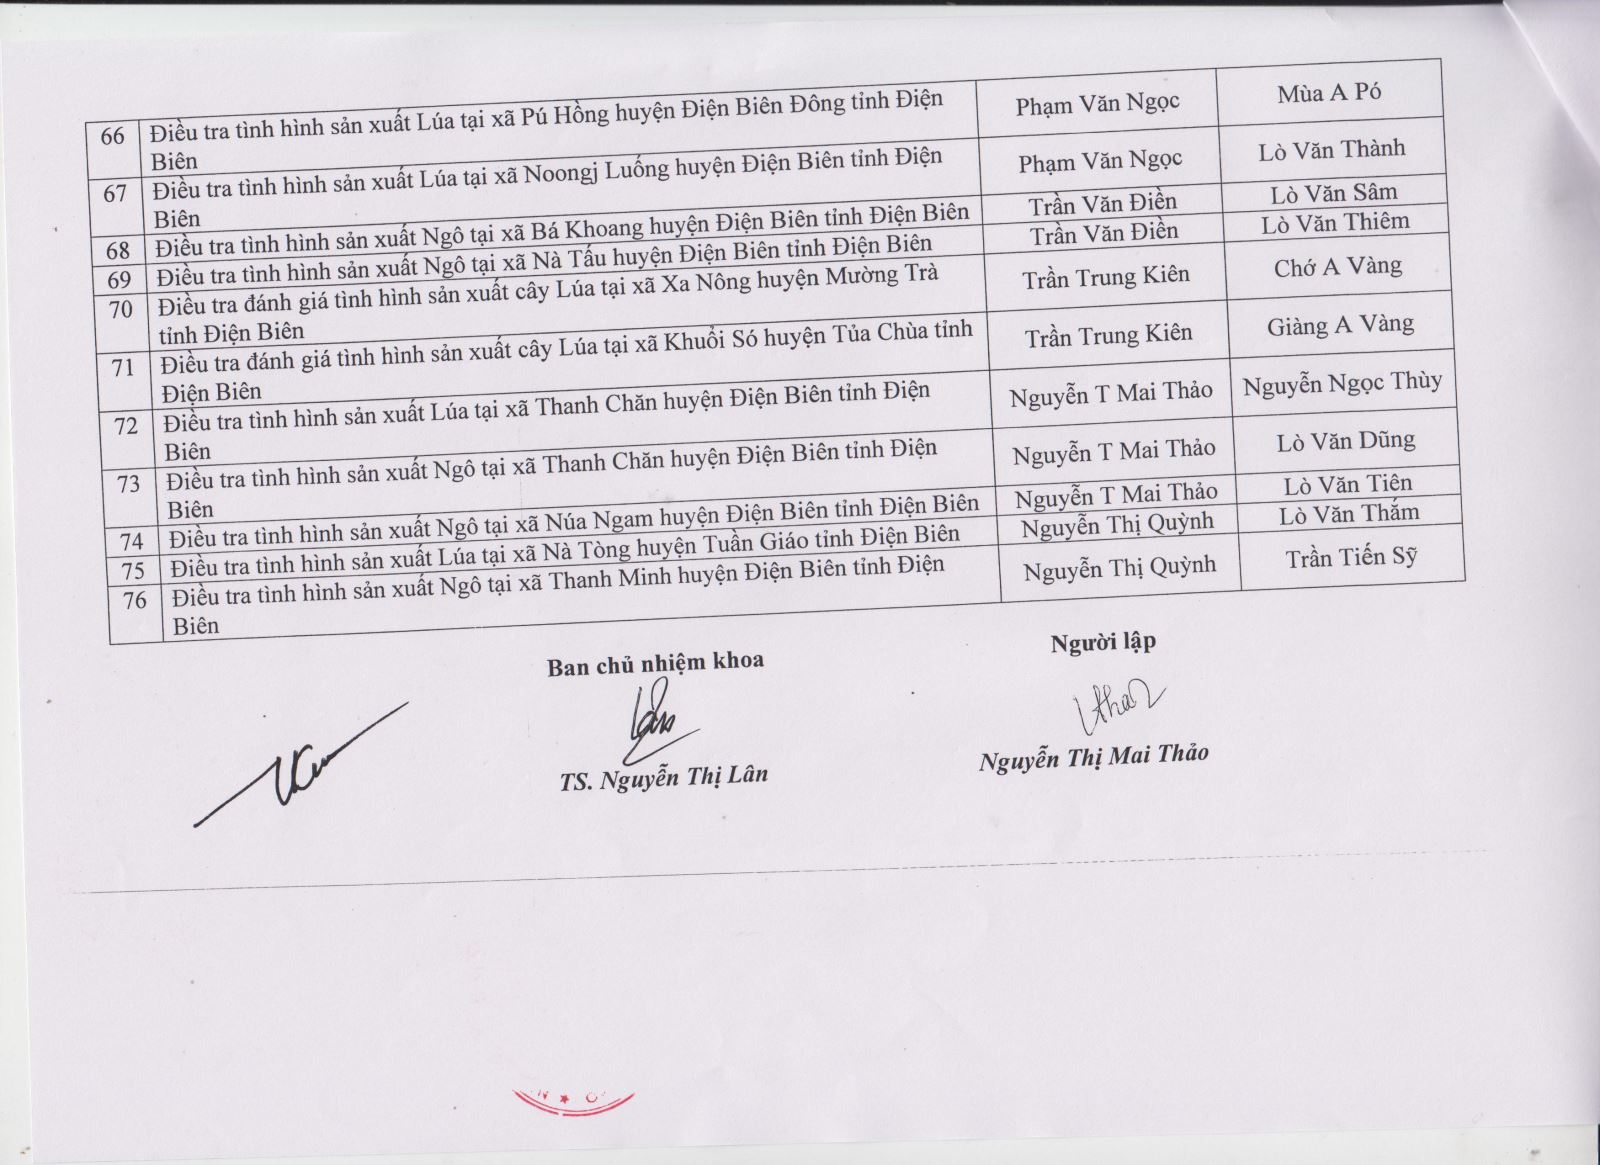 66 Điều tra tình hình sản xuất Lúa tại xã Pú Hồng huyện Điện Biên Đông tỉnh Điện Phạm Văn Ngọc Mùa A Pó
Biên
67 Điều tra tình hình sản xuất Lúa tại xã Noongj Luống huyện Điện Biên tỉnh Điện Phạm Văn Ngọc Lò Văn Thành
Biên
68 Điều tra tình hình sản xuất Ngô tại xã Bá Khoang huyện Điện Biên tỉnh Điện Biên Trần Văn Điền Lò Văn Sâm
69 Điều tra tình hình sản xuất Ngô tại xã Nà Tấu huyện Điện Biên tỉnh Điện Biên Trần Văn Điền Lò Văn Thiêm
70 Điều tra đánh giá tình hình sản xuất cây Lúa tại xã Xa Nông huyện Mường Trà Trần Trung Kiên Chớ A Vàng
tỉnh Điện Biên
71 Điều tra đánh giá tình hình sản xuất cây Lúa tại xã Khuổi Só huyện Tủa Chùa tỉnh Trần Trung Kiên Giàng A Vàng
Điện Biên
72 Điều tra tình hình sản xuất Lúa tại xã Thanh Chăn huyện Điện Biên tỉnh Điện Nguyễn T Mai Thảo Nguyễn Ngọc Thùy
Biên
73 Điều tra tình hình sản xuất Ngô tại xã Thanh Chăn huyện Điện Biên tỉnh Điện Nguyễn T Mai Thảo Lò Văn Dũng
Biên
74 Điều tra tình hình sản xuất Ngô tại xã Núa Ngam huyện Điện Biên tỉnh Điện Biên Nguyễn T Mai Thảo Lò Văn Tiên
75 Điều tra tình hình sản xuất Lúa tại xã Nà Tòng huyện Tuần Giáo tỉnh Điện Biên Nguyễn Thị Quỳnh Lò Văn Thắm
76 Điều tra tình hình sản xuất Ngô tại xã Thanh Minh huyện Điện Biên tỉnh Điện Nguyễn Thị Quỳnh Trần Tiến Sỹ
Biên
Ban chủ nhiệm khoa Người lập
TS. Nguyễn Thị Lân Nguyễn Thị Mai Thảo